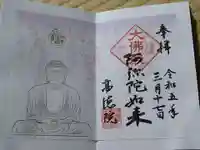 奉拝
大佛
阿弥陀如来
令和五年
三月十一日
高徳院